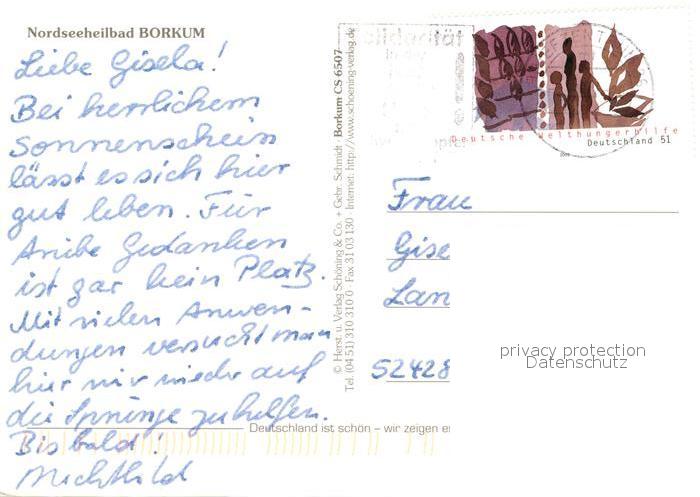 Nordseeheilbad BORKUM
Liebe Gisela!
Bei herrlichem
Sonnenschein
lässt es sich hier
gut leben. Für
trübe Gedanken
ist gar kein Platz.
Mit vielen Anwen-
dungen versucht man
hier mir wieder auf
die Sprünge zu helfen.
Bis bald!
Mechthild
© Herst. u. Verlag Schöning & Co. + Gebr. Schmidt · Borkum CS 6507
Tel. (04 51) 310 310 0 · Fax 31 03 130 · Internet: http://www.schoening-verlag.de
Solidarität
Deutsche Welthungerhilfe
Deutschland 51
Frau
Gise
Lan
52428
privacy protection
Datenschutz
Deutschland ist schön – wir zeigen es